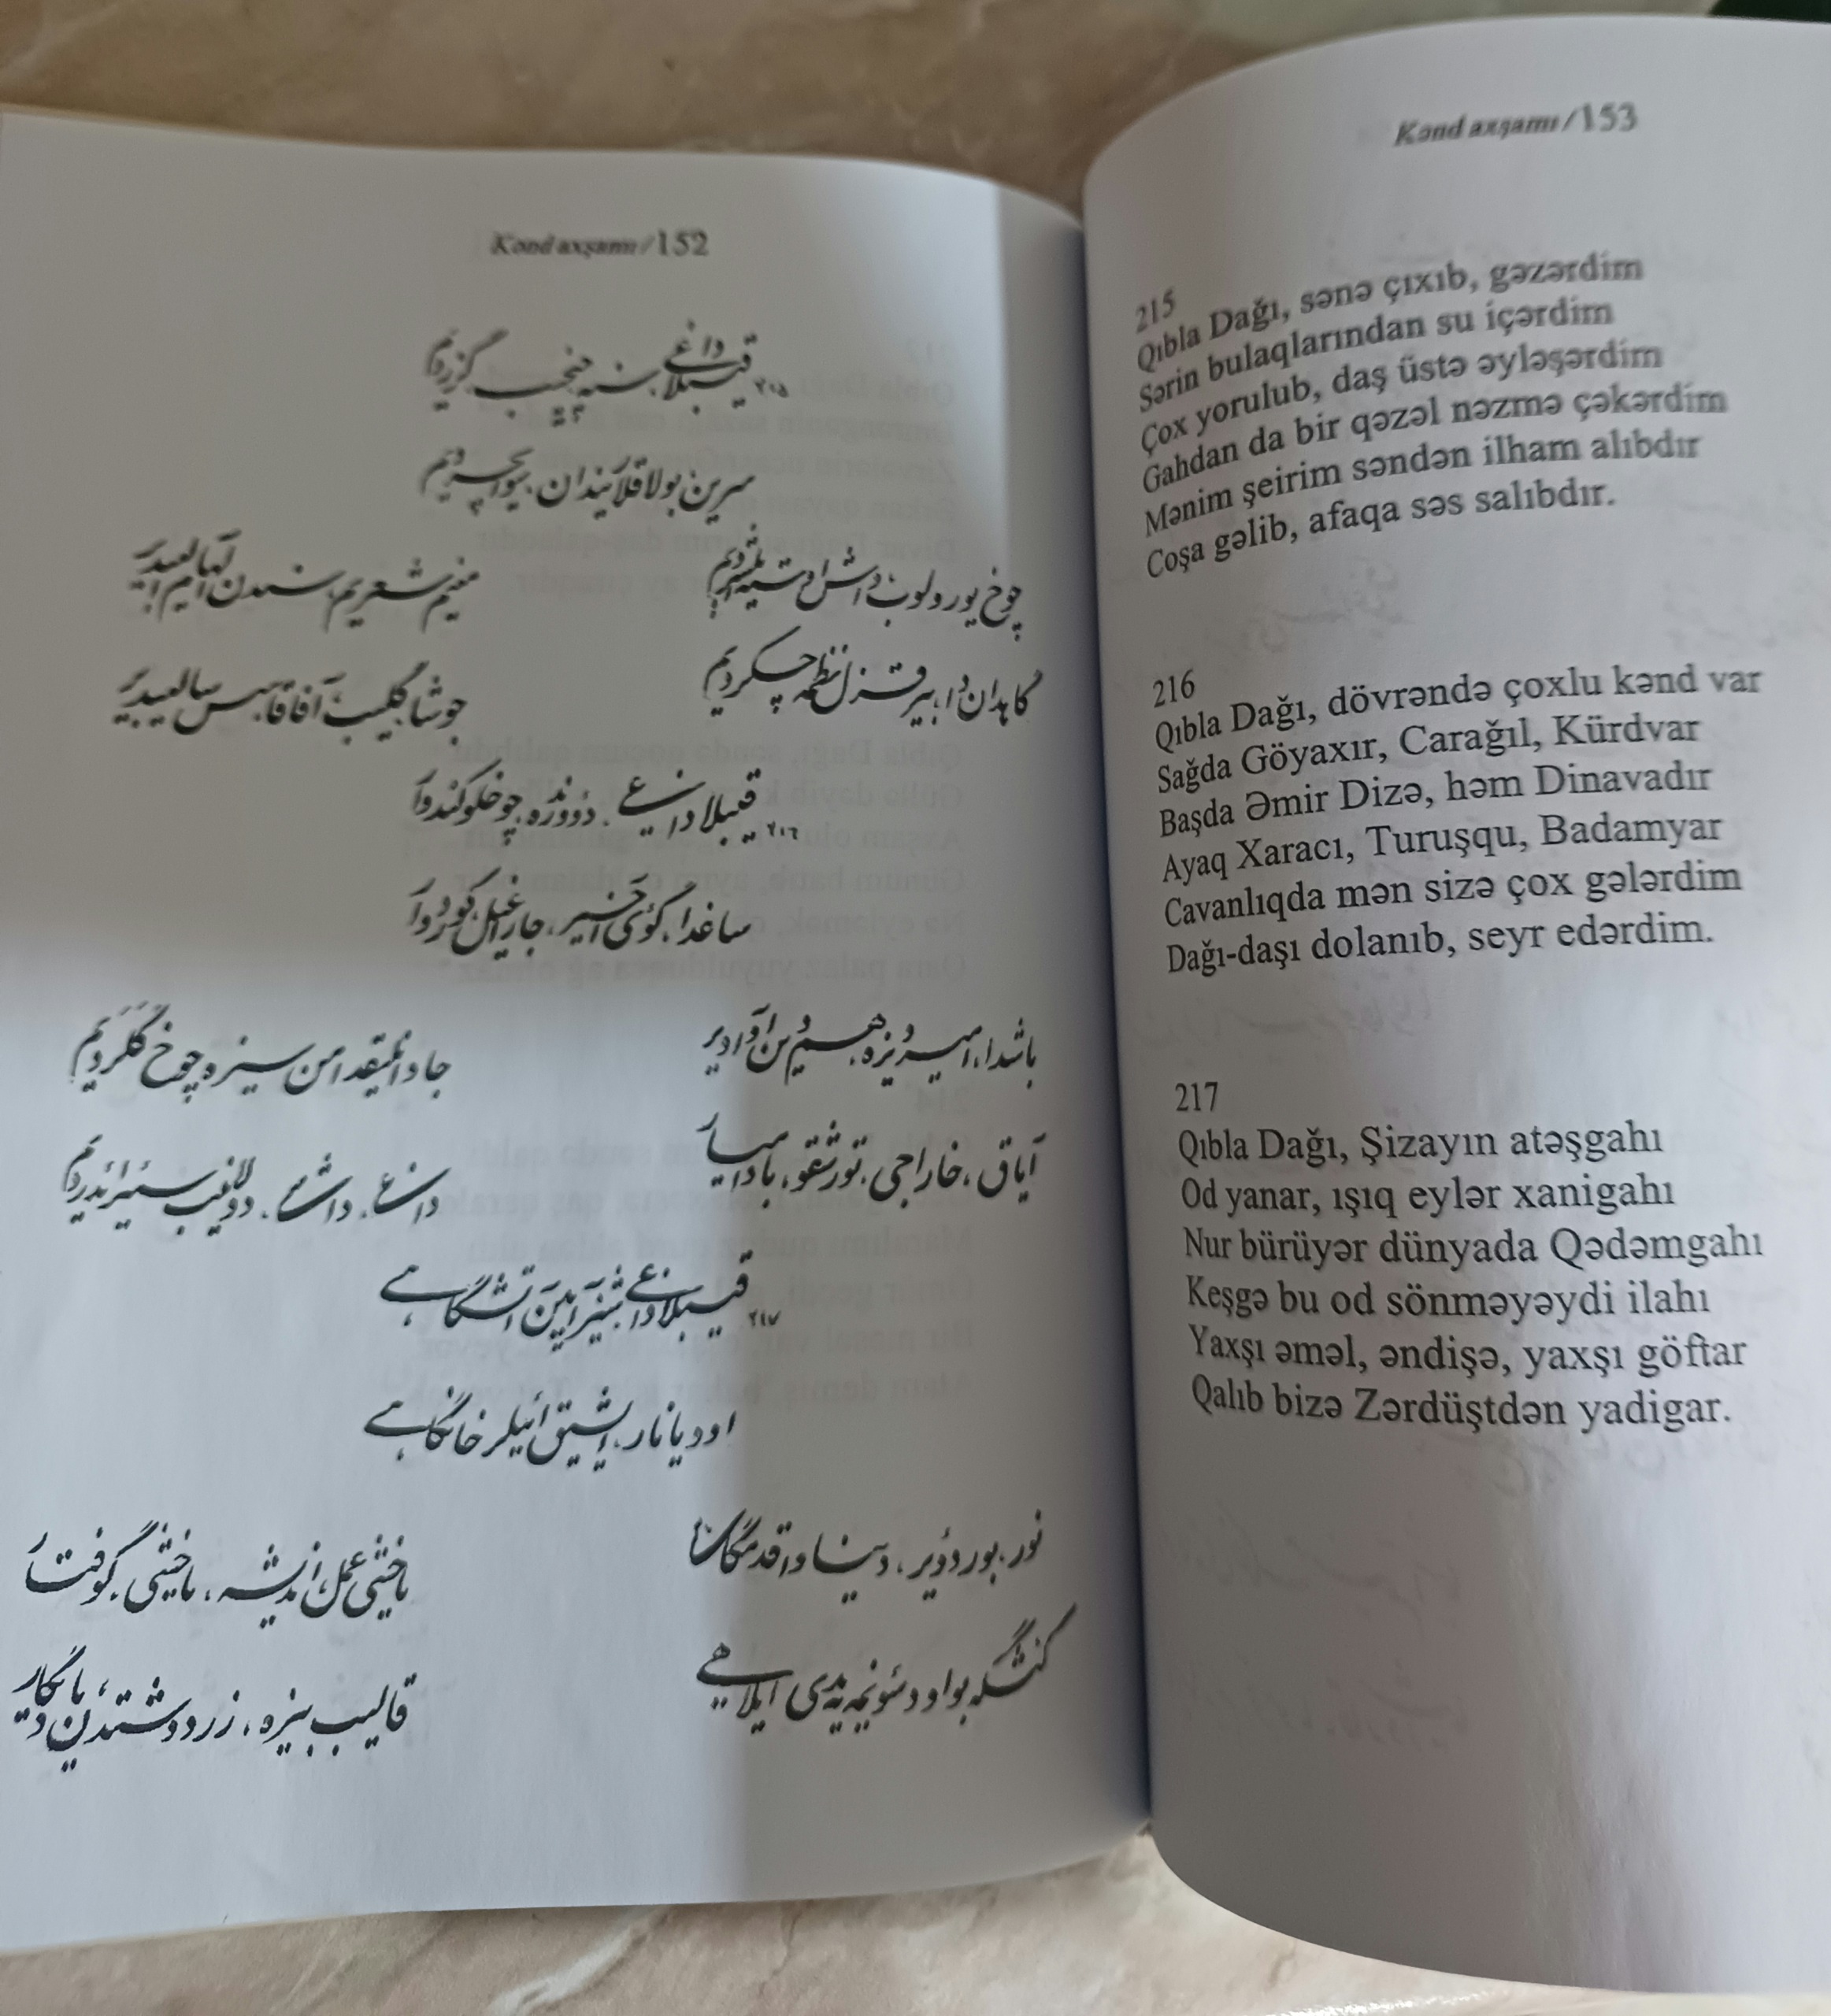 Kənd axşamı/152
۲۱۵ قیبلا داغی، سنه چیخیب گزردیم
سرین بولاقلاریندان، سو ایچردیم
چوخ یورولوب، داش اوسته ایلشردیم
گاهدان دا، بیر قزل نظمه چکردیم
منیم شعریم، سندن الهام آلیبدیر
جوشا گلیب، آفاقا سس سالیبدیر
۲۱۶ قیبلا داغی، دؤورنده، چوخلو کند وار
ساغدا، گؤی آخیر، جاراغیل، کوردوار
باشدا، امیر دیزه، هم دیناوادیر
آیاق، خاراجی، توروشقو، بادامیار
جاوانلیقدا من سیزه چوخ گلردیم
داغی، داشی، دولانیب سئیر ائدردیم
۲۱۷ قیبلا داغی، شیزایین آتشگاهی
اود یانار، ایشیق ائیلر خانگاهی
نور، بورویر، دنیادا قدمگاهی
کئشگه بو اود سؤنمه‌یه‌یدی ایلاهی
یاخشی عمل، اندیشه، یاخشی گوفتار
قالیب بیزه، زردوشتدن یادیگار
Kənd axşamı/153
215
Qıbla Dağı, sənə çıxıb, gəzərdim
Sərin bulaqlarından su içərdim
Çox yorulub, daş üstə əyləşərdim
Gahdan da bir qəzəl nəzmə çəkərdim
Mənim şeirim səndən ilham alıbdır
Coşa gəlib, afaqa səs salıbdır.
216
Qıbla Dağı, dövrəndə çoxlu kənd var
Sağda Göyaxır, Carağıl, Kürdvar
Başda Əmir Dizə, həm Dinavadır
Ayaq Xaracı, Turuşqu, Badamyar
Cavanlıqda mən sizə çox gələrdim
Dağı-daşı dolanıb, seyr edərdim.
217
Qıbla Dağı, Şizayın atəşgahı
Od yanar, ışıq eylər xanigahı
Nur bürüyər dünyada Qədəmgahı
Keşgə bu od sönməyəydi ilahı
Yaxşı əməl, əndişə, yaxşı göftar
Qalıb bizə Zərdüştdən yadigar.